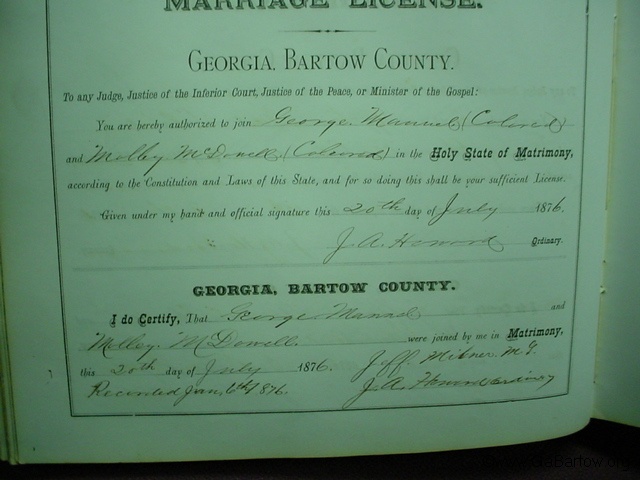 MARRIAGE LICENSE.
GEORGIA, BARTOW COUNTY.
To any Judge, Justice of the Inferior Court, Justice of the Peace, or Minister of the Gospel:
You are hereby authorized to join George Manuel (Colored)
and Molley McDowell (Coloured) in the Holy State of Matrimony,
according to the Constitution and Laws of this State, and for so doing this shall be your sufficient License.
Given under my hand and official signature this 20th day of July 1876.
J. A. Howard Ordinary.
GEORGIA, BARTOW COUNTY.
I do Certify, That George Manuel and
Molley McDowell were joined by me in Matrimony,
this 20th day of July 1876. Jeff. Milner. M.G.
Recorded Jan, 1876. J. A. Howard ordinary